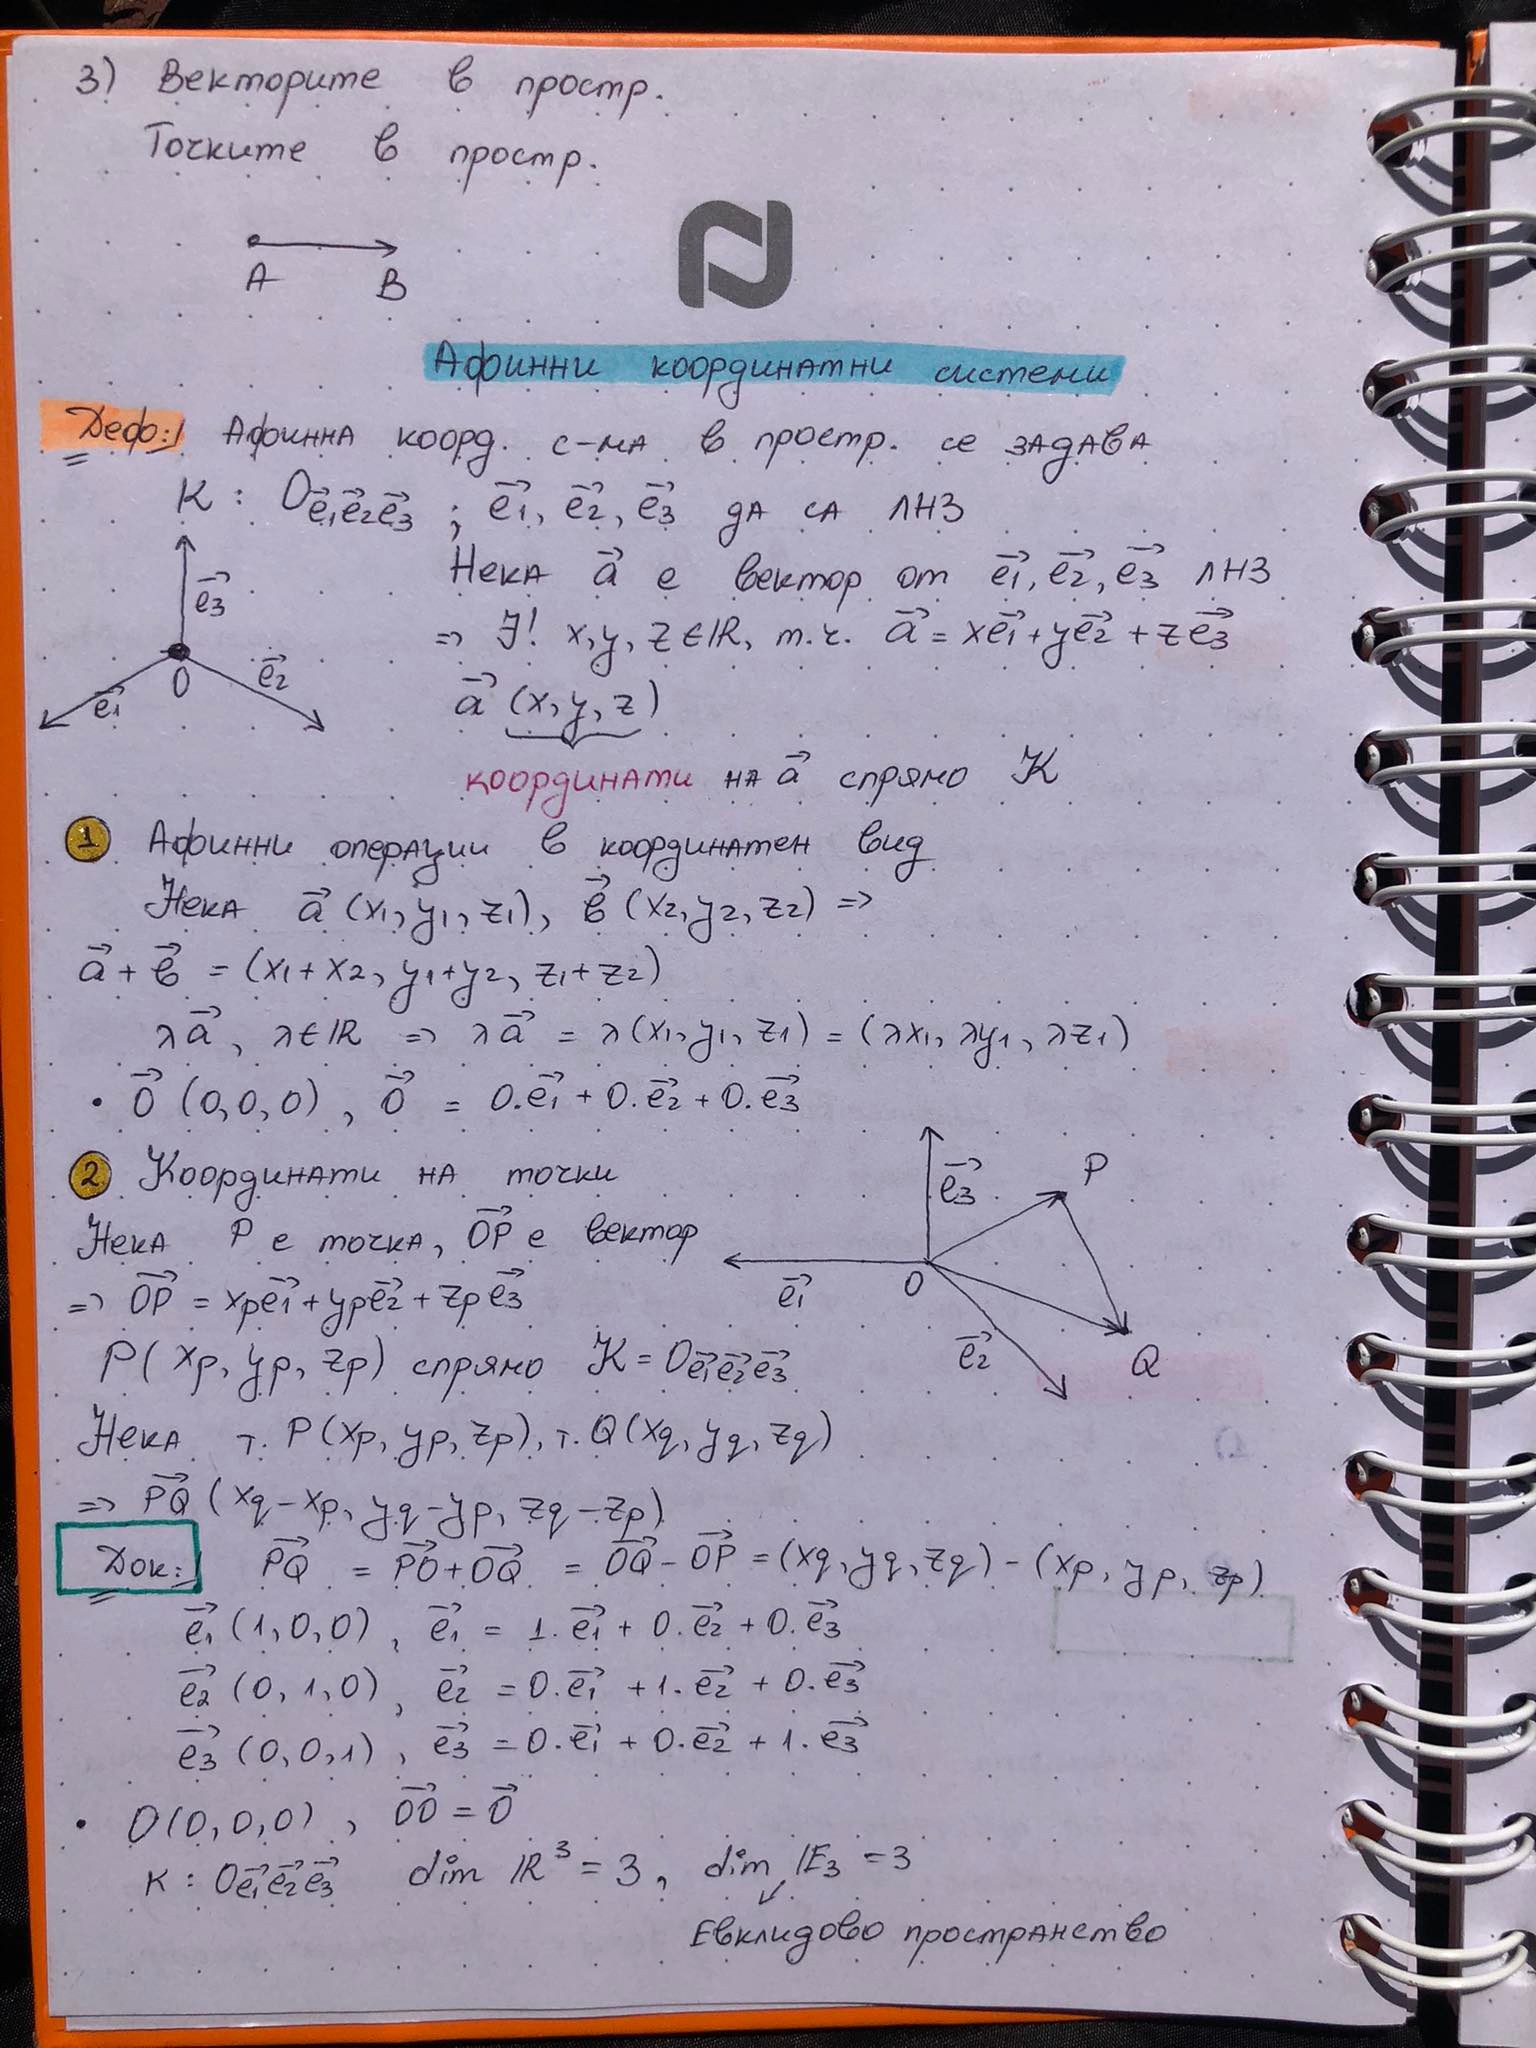 3) Векторите в простр.
Точките в простр.
A B
Афинни координатни системи
Деф:/ Афинна коорд. с-ма в простр. се задава
K : O e₁⃗e₂⃗e₃⃗ ; e₁⃗, e₂⃗, e₃⃗ да са ЛНЗ
Нека a⃗ е вектор от e₁⃗, e₂⃗, e₃⃗ ЛНЗ
=> ∃! x, y, z ∈ ℝ, т.ч. a⃗ = xe₁⃗ + ye₂⃗ + ze₃⃗
e₃⃗
O
e₁⃗ e₂⃗
a⃗ (x, y, z)
координати на a⃗ спрямо K
1 Афинни операции в координатен вид
Нека a⃗ (x₁, y₁, z₁), в⃗ (x₂, y₂, z₂) =>
a⃗ + в⃗ = (x₁ + x₂, y₁ + y₂, z₁ + z₂)
λa⃗, λ ∈ ℝ => λa⃗ = λ(x₁, y₁, z₁) = (λx₁, λy₁, λz₁)
• O⃗ (0, 0, 0), O⃗ = 0.e₁⃗ + 0.e₂⃗ + 0.e₃⃗
2 Координати на точки
Нека P е точка, OP⃗ е вектор
=> OP⃗ = xₚe₁⃗ + yₚe₂⃗ + zₚe₃⃗
P(xₚ, yₚ, zₚ) спрямо K = O e₁⃗e₂⃗e₃⃗
e₃⃗ P
e₁⃗ O
e₂⃗ Q
Нека т. P(xp, yp, zp), т. Q(xq, yq, zq)
=> PQ⃗ (xq - xp, yq - yp, zq - zp)
Док:/ PQ⃗ = PO⃗ + OQ⃗ = OQ⃗ - OP⃗ = (xq, yq, zq) - (xp, yp, zp)
e₁⃗ (1, 0, 0), e₁⃗ = 1.e₁⃗ + 0.e₂⃗ + 0.e₃⃗
e₂⃗ (0, 1, 0), e₂⃗ = 0.e₁⃗ + 1.e₂⃗ + 0.e₃⃗
e₃⃗ (0, 0, 1), e₃⃗ = 0.e₁⃗ + 0.e₂⃗ + 1.e₃⃗
• O(0, 0, 0), OO⃗ = O⃗
K : O e₁⃗e₂⃗e₃⃗ dim ℝ³ = 3, dim 𝔼₃ = 3
Евклидово пространство